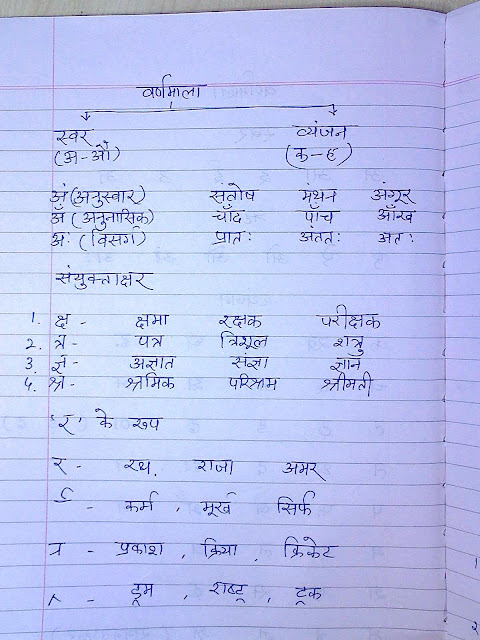 वर्णमाला
स्वर व्यंजन
(अ-औ) (क-ह)
अं (अनुस्वार) संतोष मंथन अंगूर
अँ (अनुनासिक) चाँद पाँच आँख
अः (विसर्ग) प्रातः अंततः अतः
संयुक्ताक्षर
1. क्ष - क्षमा रक्षक परीक्षक
2. त्र - पत्र त्रिशूल शत्रु
3. ज्ञ - अज्ञात संज्ञा ज्ञान
4. श्र - श्रमिक परिश्रम श्रीमती
'र' के रूप
र - रथ, राजा अमर
र्
 - कर्म, मूर्ख सिर्फ
्र - प्रकाश, क्रिया, क्रिकेट
- ड्रम, राष्ट्र, ट्रक